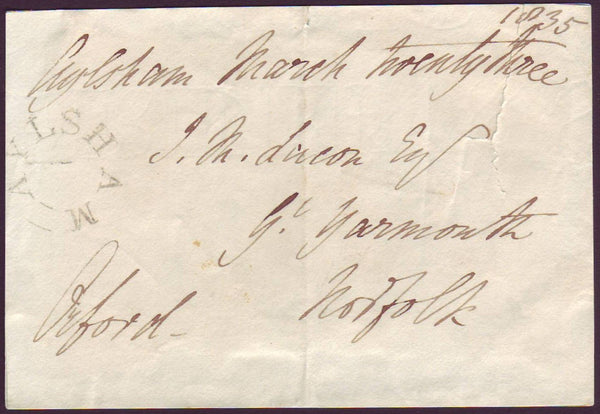 1835
Aylsham March twenty three
AYLSHAM
J. M. Lacon Esq
Gt Yarmouth
Norfolk
Orford